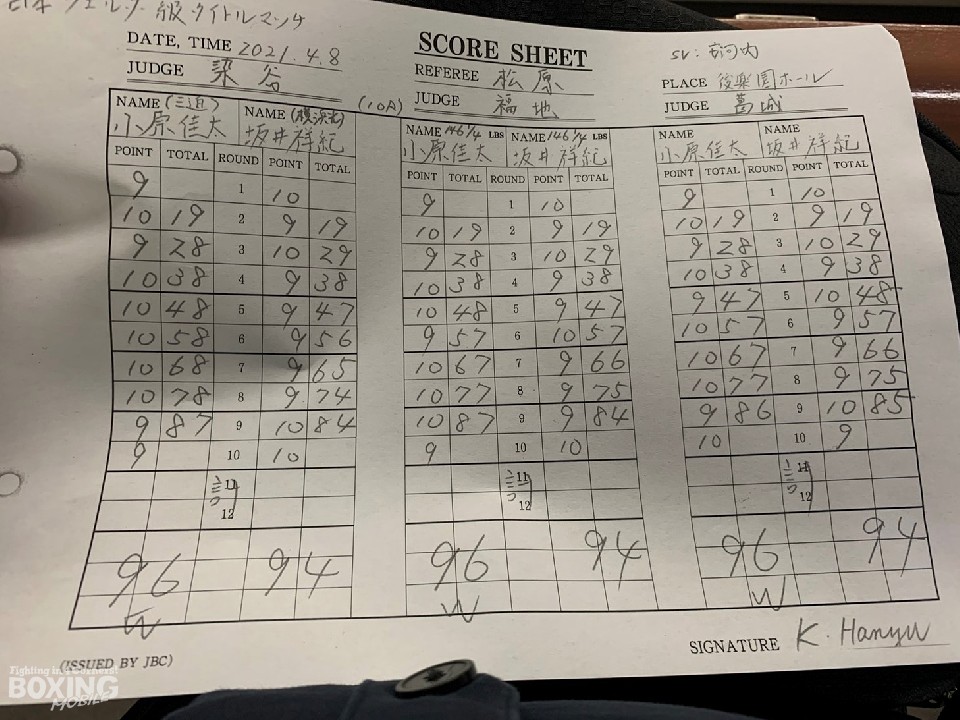 日本ウェルター級タイトルマッチ
SCORE SHEET
DATE, TIME 2021.4.8
REFEREE 松原
JUDGE 染谷
JUDGE 福地
PLACE 後楽園ホール
JUDGE 葛城
(10R)
NAME (三迫) NAME
小原佳太 坂井祥紀
NAME 146 1/4 LBS NAME 146 1/4 LBS
小原佳太 坂井祥紀
NAME NAME
小原佳太 坂井祥紀
POINT TOTAL ROUND POINT TOTAL POINT TOTAL ROUND POINT TOTAL POINT TOTAL ROUND POINT TOTAL
9 1 10 9 1 10 9 1 10
10 19 2 9 19 10 19 2 9 19 10 19 2 9 19
9 28 3 10 29 9 28 3 10 29 9 28 3 10 29
10 38 4 9 38 10 38 4 9 38 10 38 4 9 38
10 48 5 9 47 10 48 5 9 47 9 47 5 10 48
10 58 6 9 56 9 57 6 10 57 10 57 6 9 57
10 68 7 9 65 10 67 7 9 66 10 67 7 9 66
10 78 8 9 74 10 77 8 9 75 10 77 8 9 75
9 87 9 10 84 10 87 9 9 84 9 86 9 10 85
9 10 10 9 10 10 10 10 9
11 11 11
12 12 12
96 94 96 94 96 94
W W W
SIGNATURE K. Hanyu
(ISSUED BY JBC)
Fighting in 4 Corners!
BOXING
MOBILE